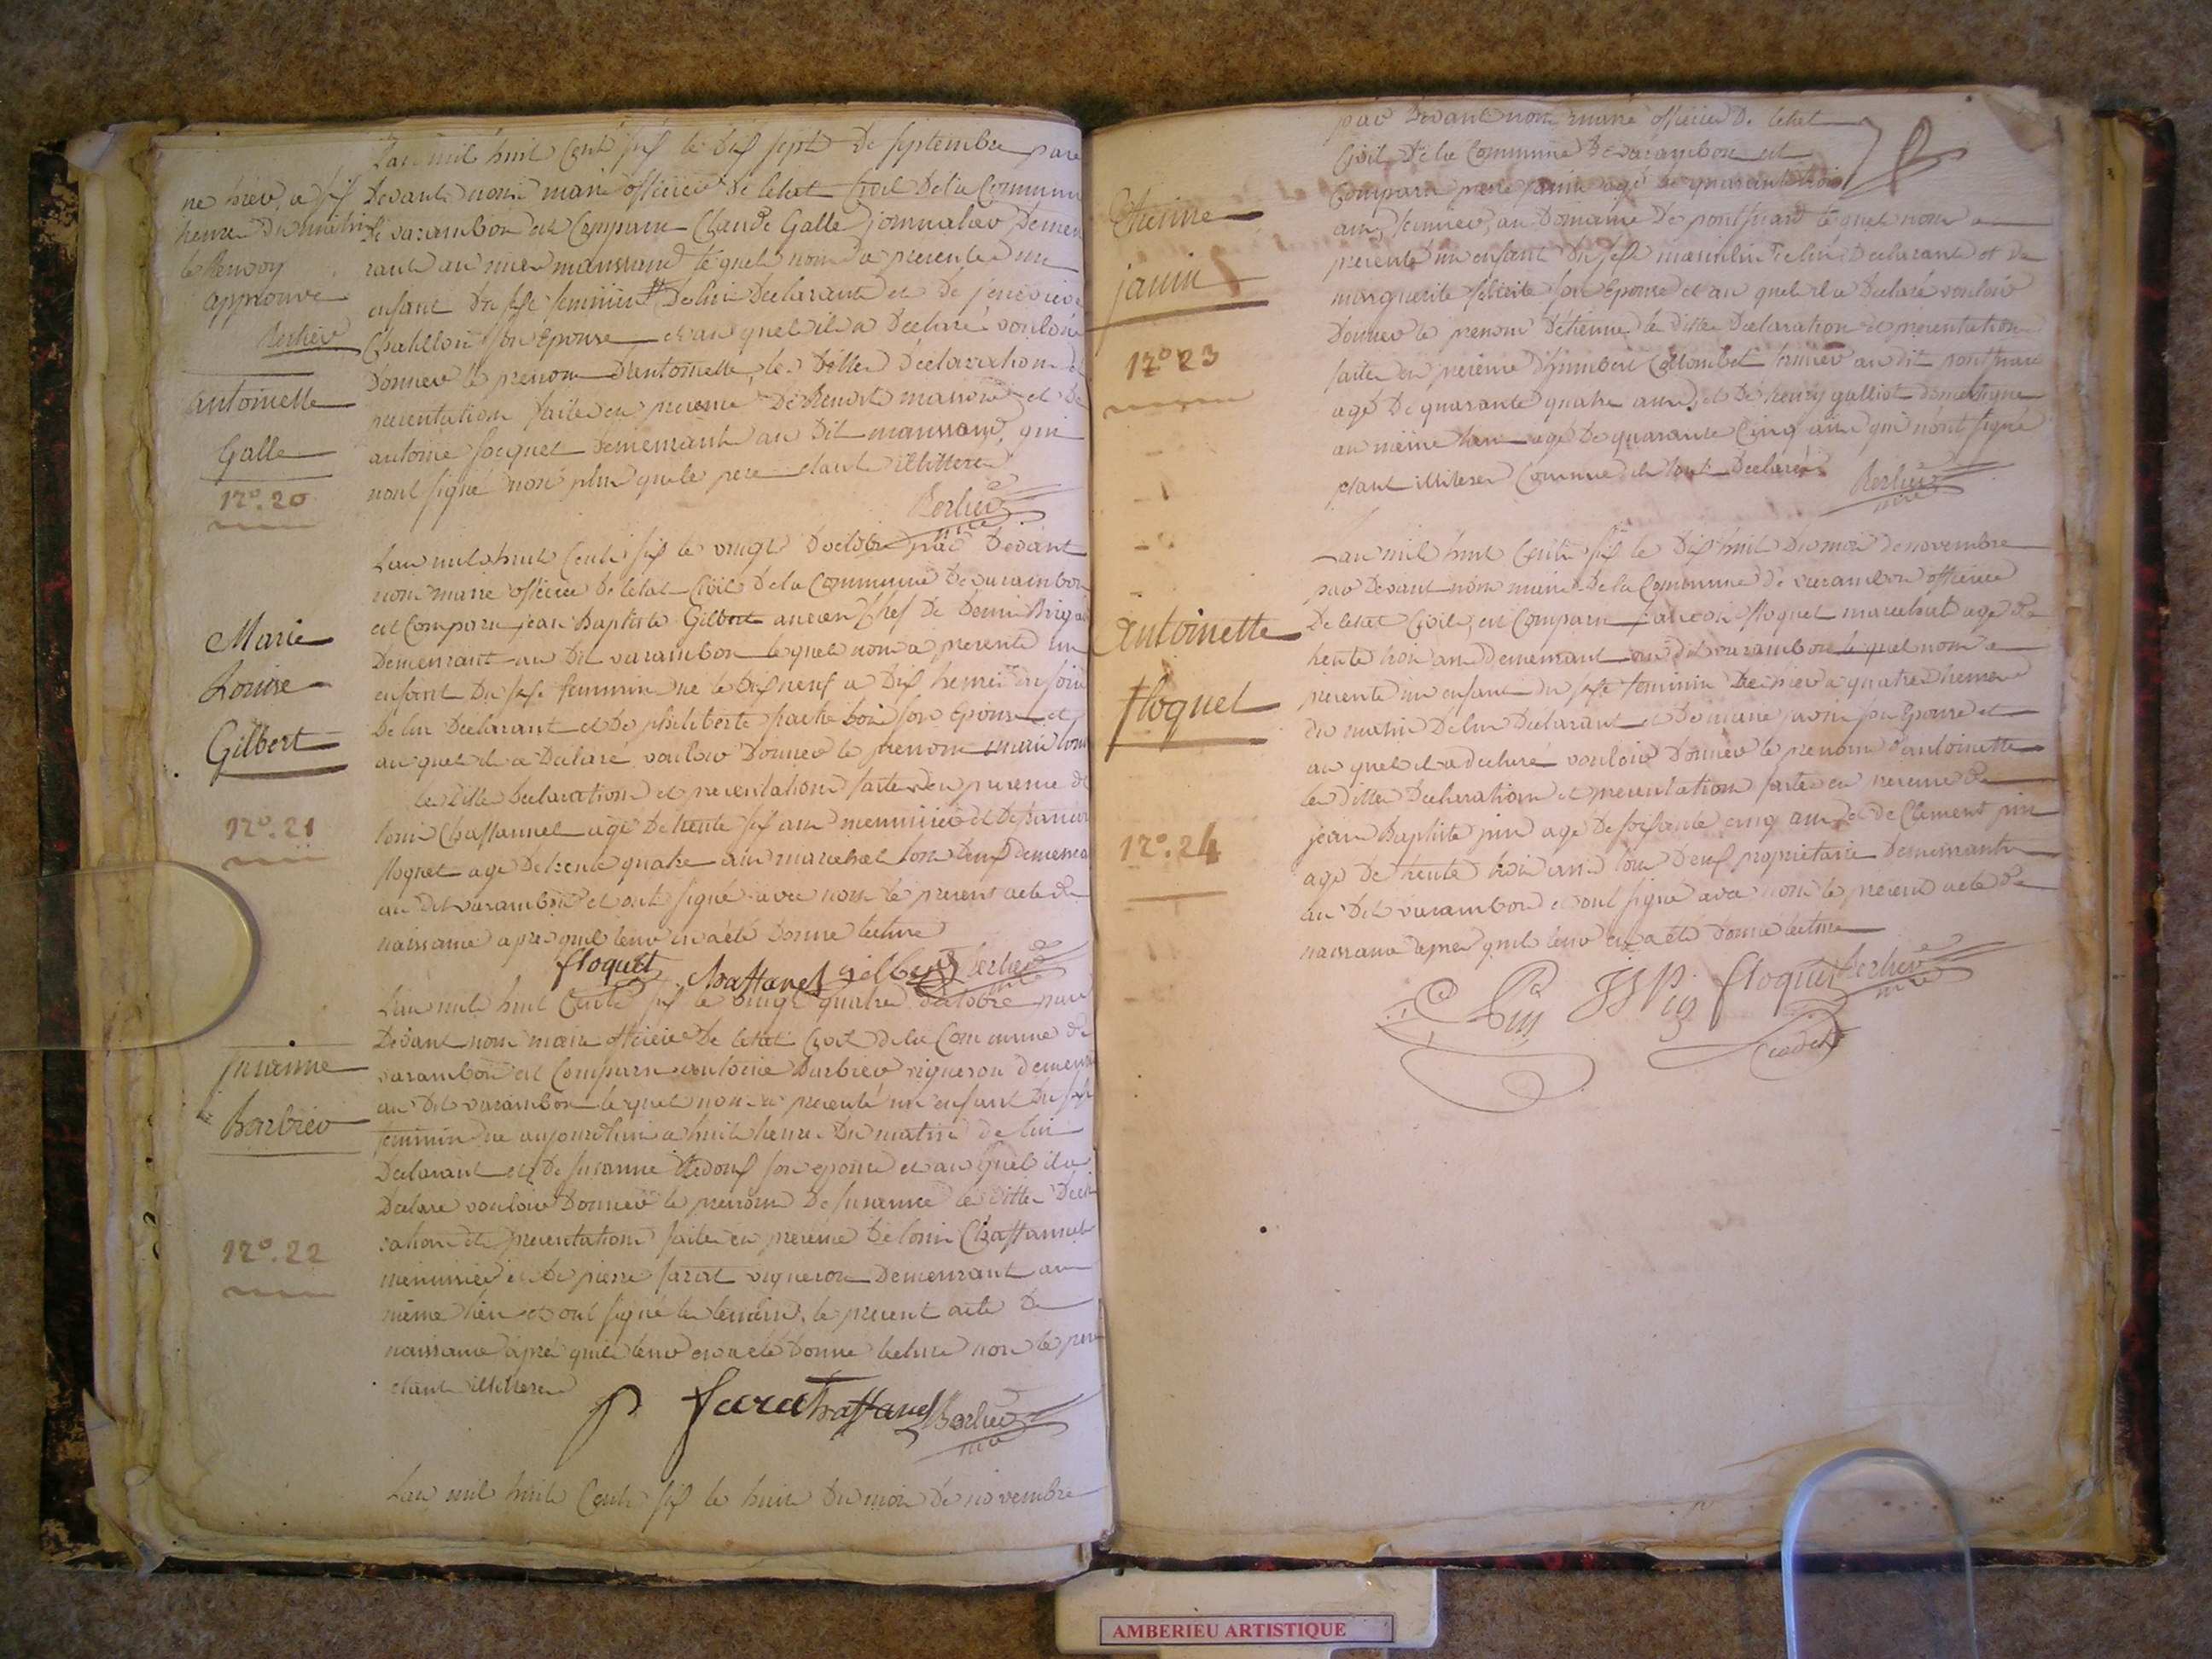 L'an mil huit Cent six le dix sept De septembre par
Devant nous maire officier De letat Civil Dela Commune
De varambon est Comparu Claude Galle journalier Demeu
rant au mier manssand lequel nous a presenté un
enfant Du sexe feminin # De lui Declarant et De jenevieve
Chatillon son Epouse et au quel il a Declaré vouloir
Donner le prenom D'entoinette, les Dittes Declaration et
presentation faites en presence De Benoit et De
antoine Jocquet Demeurant au Dit manssand, qui
nont signé non plus que le pere etant illitteres
Berlier
mre
ne hier, a six
heures Du matin
le Renvoy
approuvé
Berlier
antoinette
Galle
No. 20
L'an mil huit Cent six le vingt D'octobre par Devant
nous maire officier De letat Civil Dela Commune De varambon
est Comparu jean Baptiste Gilbert ancien Chef De Demi Brigade
Demeurant au Dit varambon lequel nous a presenté un
enfant Du sexe feminin ne le Dix neuf a Dix heures du soir
De lui Declarant et De philiberte son Epouse et
au quel il a Declaré vouloir Donner le prenom marie louise
les Dittes Declaration et presentation faites en presence De
louis Chaffannel agé De trente six ans menuisier et De francois
floquet agé De trente quatre ans marechal tous Deux Demeurant
au Dit varambon et ont signé avec nous le present acte De
naissance apres quil leur en a été Donné lecture
floquet Chaffanel gilbert Berlier
mre
Marie
Louise
Gilbert
No. 21
L'an mil huit Cent six le vingt quatre D'octobre par
Devant nous maire officier De letat Civil Dela Commune De
varambon est Comparu antoine Barbier vigneron Demeurant
au Dit varambon lequel nous a presenté un enfant Du sexe
feminin ne aujourdhui a huit heures Du matin De lui
Declarant et De susanne son epouse et au quel il a
Declare vouloir Donner le prenom De susanne les Dittes Decla
ration et presentation faites en presence De louis Chaffannel
menuisier et De pierre farat vigneron Demeurant au
même lieu et ont signé les temoins, le present acte De
naissance après quil leur en a été Donné lecture non le pere
etant illittere
P farat Chaffanel Berlier
mre
susanne
Barbier
No. 22
L'an mil huit Cent six le huit Du mois De novembre
par Devant nous maire officier De letat
Civil De la Commune De varambon est
Comparu pierre janin agé De quarante trois
ans, fermier, au Domaine De pontsuard lequel nous a
presenté un enfant Du sexe masculin De lui Declarant et De
marguerite son Epouse et au quel il a Declaré vouloir
Donner le prenom D'etienne les Dittes Declaration et presentation
faites en presence D'humbert Collombet fermier au dit pontsuard
agé De quarante quatre ans, et De henry galliot Domestique
au même lieu agé De quarante Cinq ans qui n'ont signé
etant illiteres Comme ils l'ont Declarés
Berlier
mre
Etienne
janin
No. 23
L'an mil huit Cent six le Dix huit Du mois De novembre
par Devant nous maire De la Commune De varambon officier
De letat Civil, est Comparu francois floquet marechal agé De
trente trois ans Demeurant au Dit varambon lequel nous a
presenté un enfant Du sexe feminin De hier a quatre Dheures
du matin De lui Declarant et De marie son Epouse et
au quel il a declaré vouloir Donner le prenom d'antoinette
les Dittes Declaration et presentation faites en presence De
jean Baptiste pin agé De soixante cinq ans et de Clement pin
agé De trente trois ans tous Deux proprietaires Demeurant
au Dit varambon et ont signé avec nous le present acte De
naissance apres quil leur en a été Donné lecture
C Pin JB Pin floquet Berlier
mre
Cadet
Antoinette
floquet
No. 24
AMBERIEU ARTISTIQUE